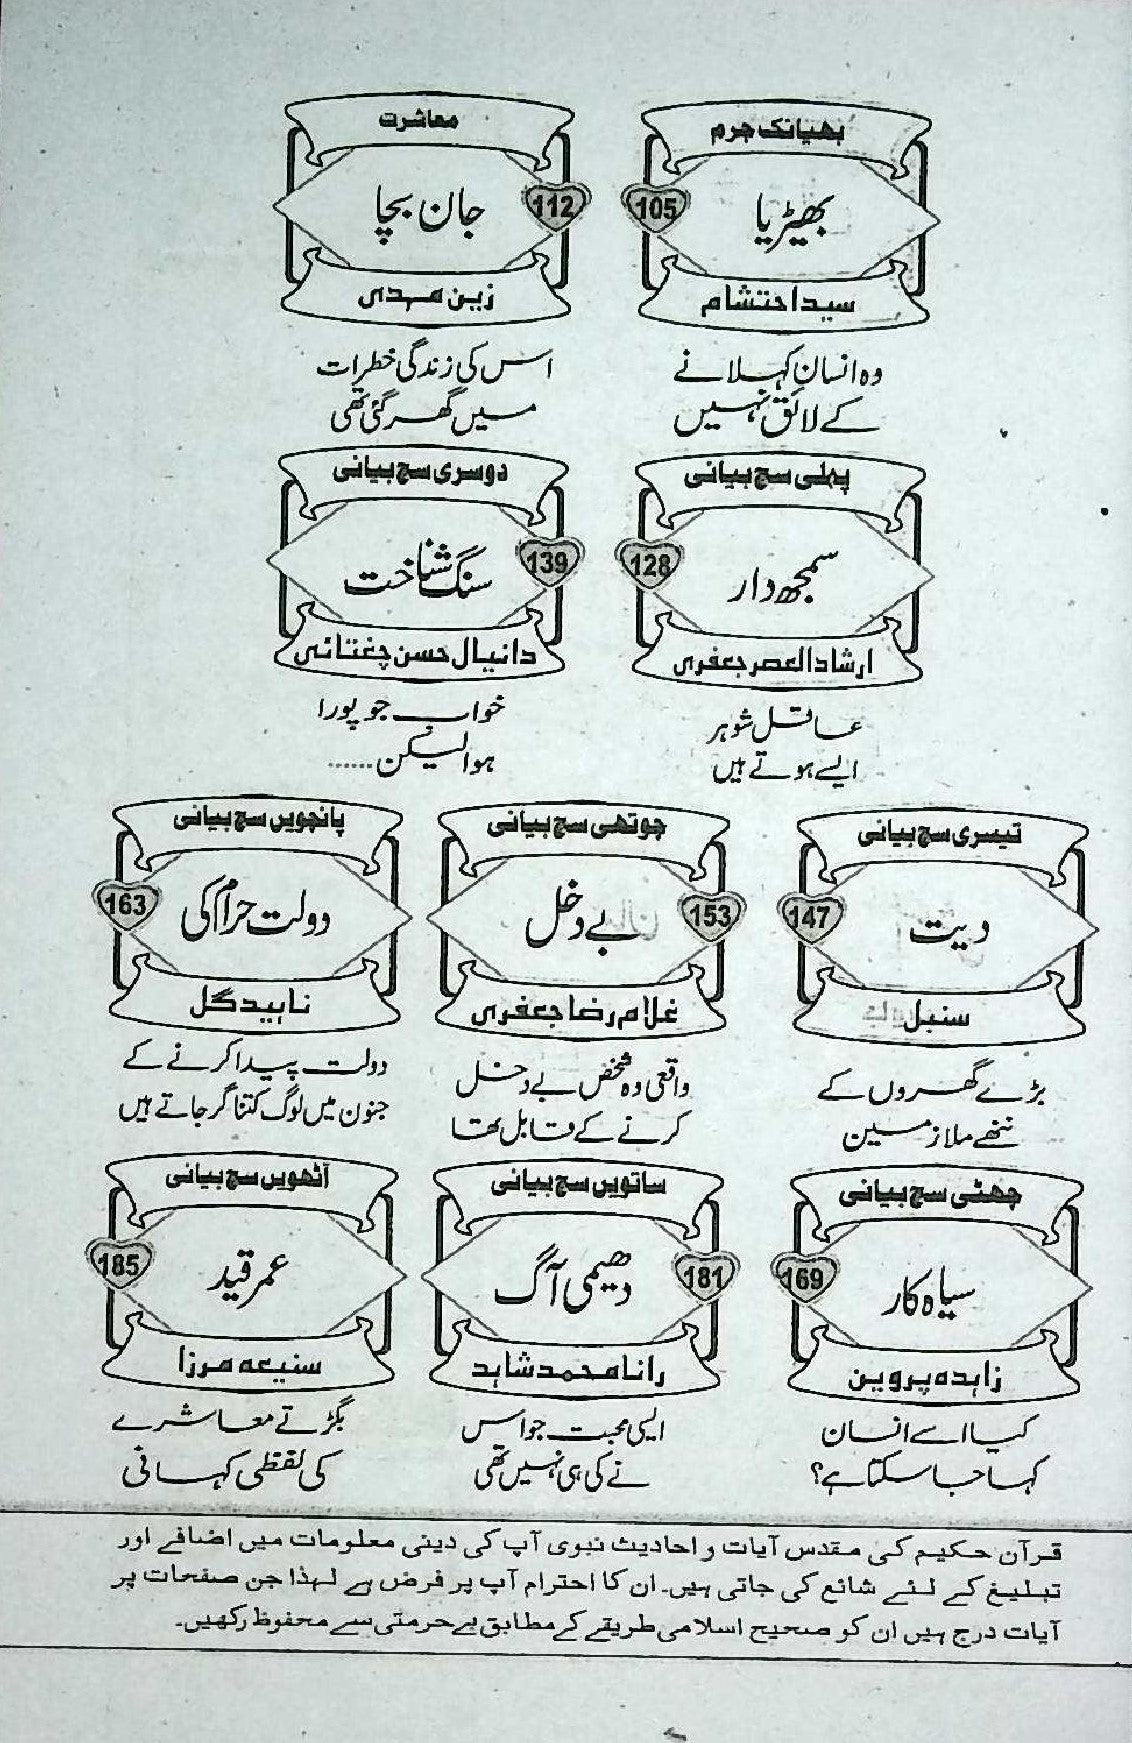 بھیانک جرم
105
بھیڑیا
سید احتشام
وہ انسان کہلانے
کے لائق نہیں
معاشرت
112
جان بچا
زین مہدی
اس کی زندگی خطرات
میں گھر گئی تھی
پہلی سچ بیانی
128
سمجھ دار
ارشاد العصر جعفری
عاقل شوہر
ایسے ہوتے ہیں
دوسری سچ بیانی
139
سنگ شناخت
دانیال حسن چغتائی
خواب جو پورا
ہوا لیکن ......
تیسری سچ بیانی
147
دیت
سنبل
بڑے گھروں کے
ننھے ملازمین
چوتھی سچ بیانی
153
بے دخل
غلام رضا جعفری
واقعی وہ شخص بے دخل
کرنے کے قابل تھا
پانچویں سچ بیانی
163
دولت حرام کی
ناہید گل
دولت پیدا کرنے کے
جنون میں لوگ کتنا گر جاتے ہیں
چھٹی سچ بیانی
169
سیاہ کار
زاہدہ پروین
کیا اسے انسان
کہا جا سکتا ہے؟
ساتویں سچ بیانی
181
دھیمی آگ
رانا محمد شاہد
ایسی محبت جو اس
نے کی ہی نہیں تھی
آٹھویں سچ بیانی
185
عمر قید
سنیعہ مرزا
بگڑتے معاشرے
کی لفظی کہانی
قرآن حکیم کی مقدس آیات و احادیث نبوی آپ کی دینی معلومات میں اضافے اور
تبلیغ کے لئے شائع کی جاتی ہیں۔ ان کا احترام آپ پر فرض ہے لہذا جن صفحات پر
آیات درج ہیں ان کو صحیح اسلامی طریقے کے مطابق بے حرمتی سے محفوظ رکھیں۔